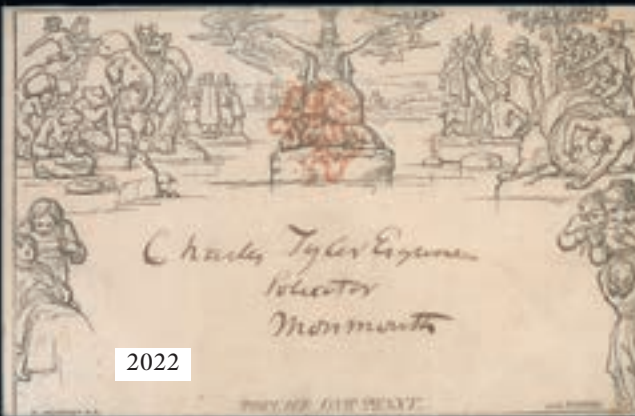 Charles Tyler Esquire
Solicitor
Monmouth
2022
POSTAGE ONE PENNY.